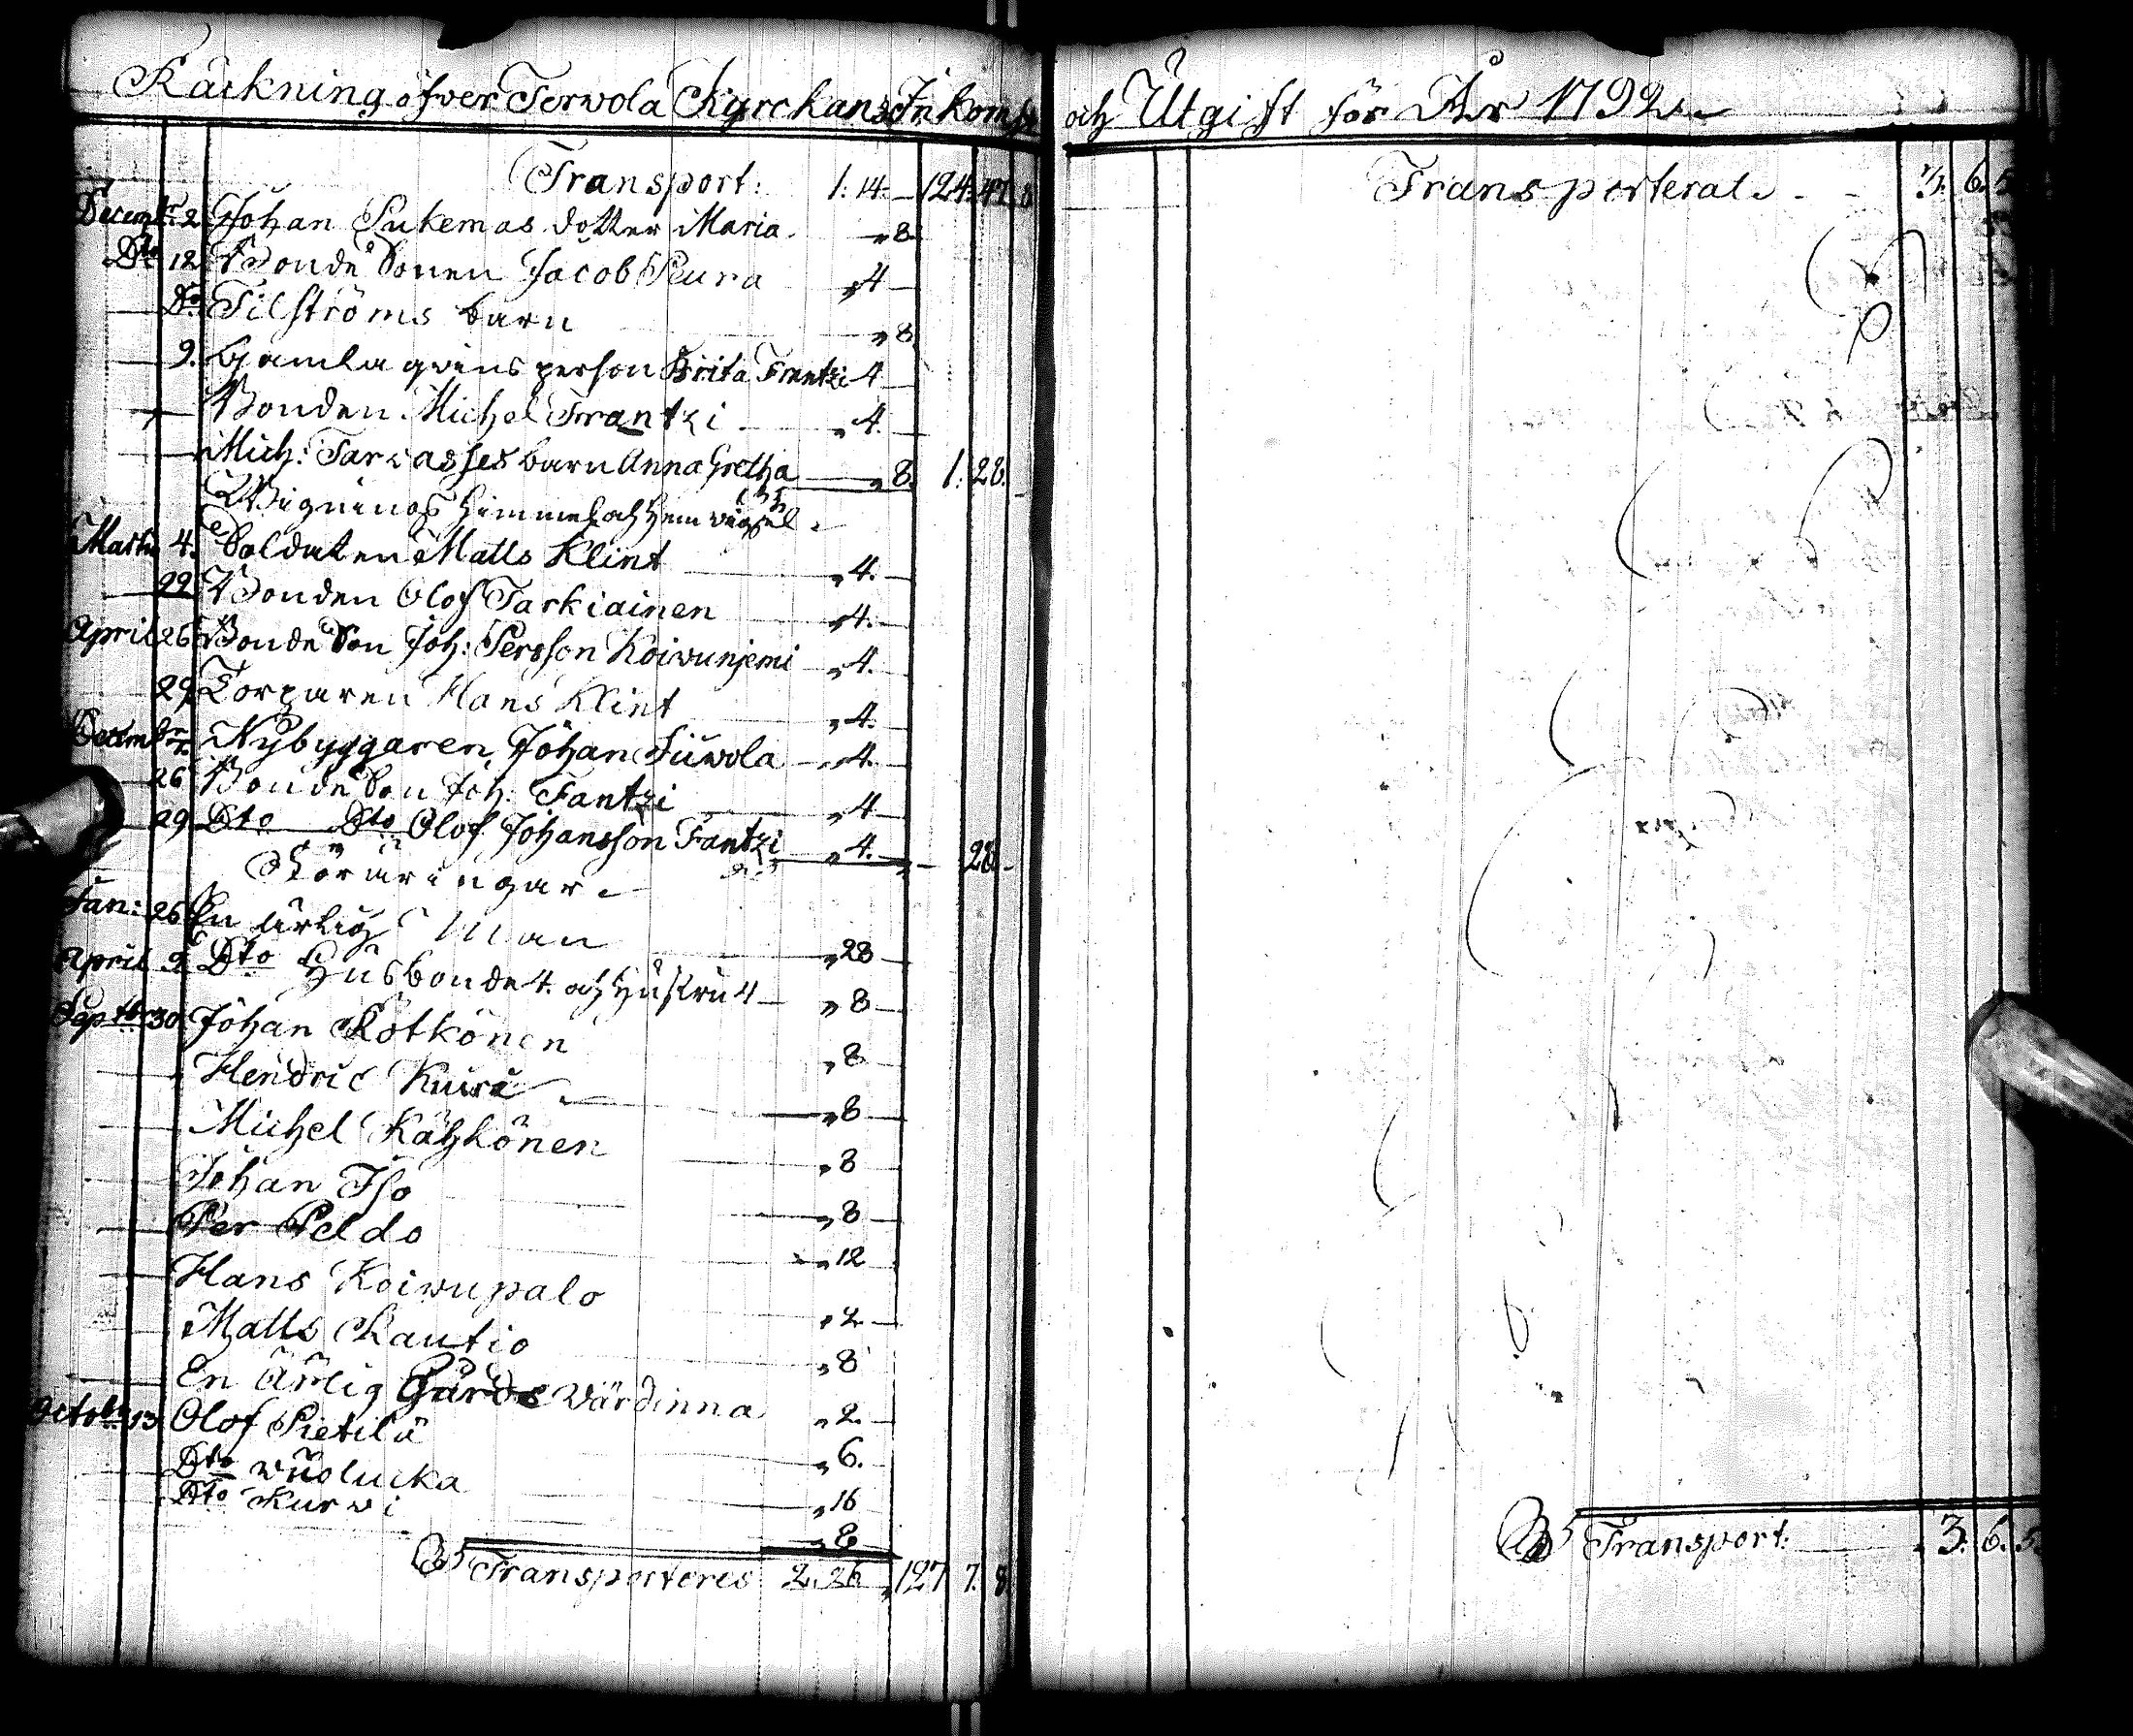 Räckning öfver Terwola Kyrckans Inkomst
Transport: 1: 14. — 124: 47. 8
Decemb: 2. Johan Sukemas dotter Maria „ 8.
Dto 12. Bonde Sonen Jacob Peura „ 4 —
Do. Tilströms barn „ 8.
9. Gamla qvins person Brita Frantzi 4 —
Bonden Michel Frantzi „ 4. —
Mich: Tarvasses barn Anna Gretha „ 8. 1: 28. —
Wignings Himmel och Hem
Martii 4. Soldaten Matts Klint „ 4. —
22. Bonden Olof Tarkiainen „ 4. —
April 26 Bonde Son Joh: Persson Koivunjemi „ 4. —
29. Torparen Hans Klint „ 4. —
Decembr Nybyggaren Johan Liuwola „ 4. —
26 Bonde Son Joh: Fantzi „ 4 —
29 Dto Dto Olof Johansson Fantzi „ 4. — 28. —
Föräringar
Jan: 26 En ärlig Man „ 28 —
April 9. Dto Husbonde 4. och Hustru 4 — „ 8 —
Septbr 30 Johan Kotkönen „ 8 —
Hendric Kuiri „ 8 —
Michel Kähkönen „ 8 —
Johan Iso „ 8 —
Per Peldo „ 12
Hans Koiwupalo „ 2 —
Matts Rautio „ 8
En Ärlig Gårds Värdinna „ 2. —
Octobr 13 Olof Pietilä „ 6. —
Dto Wuolucka „ 16
Dto Kurwi „ 8 —
Transporteres 2. 26 „ 127 7. 8.
och Utgift för År 1792
Transporterat 3. 6. 5
Transport: 3. 6. 5